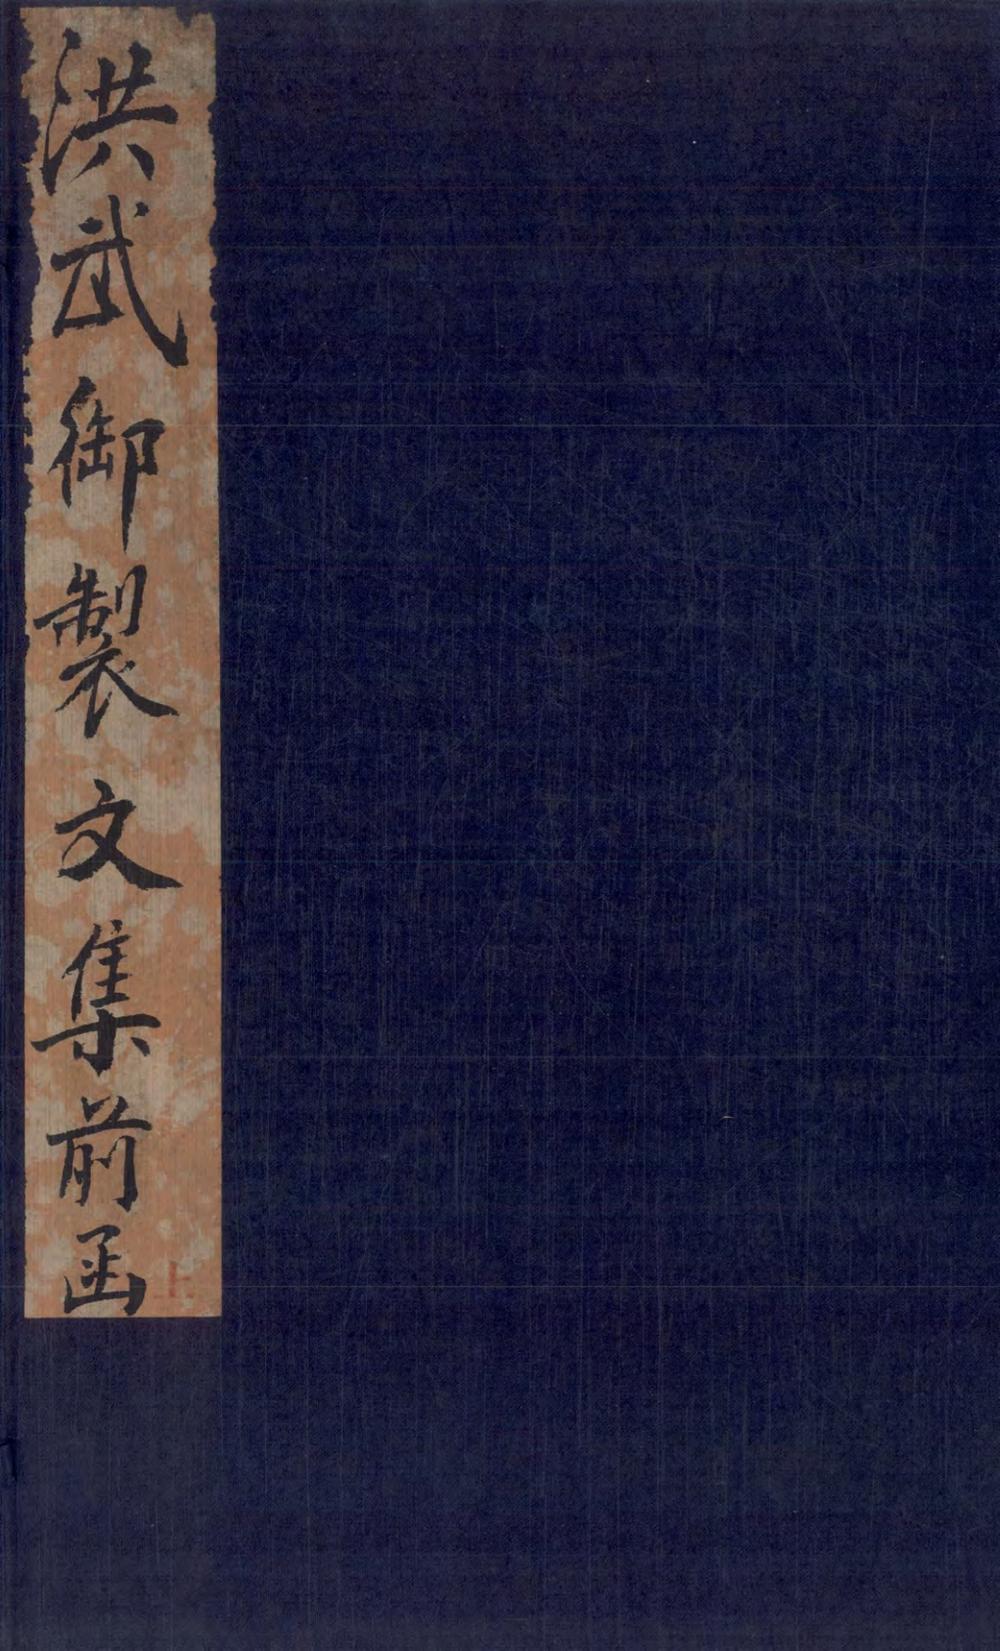 洪武御製文集前函
上